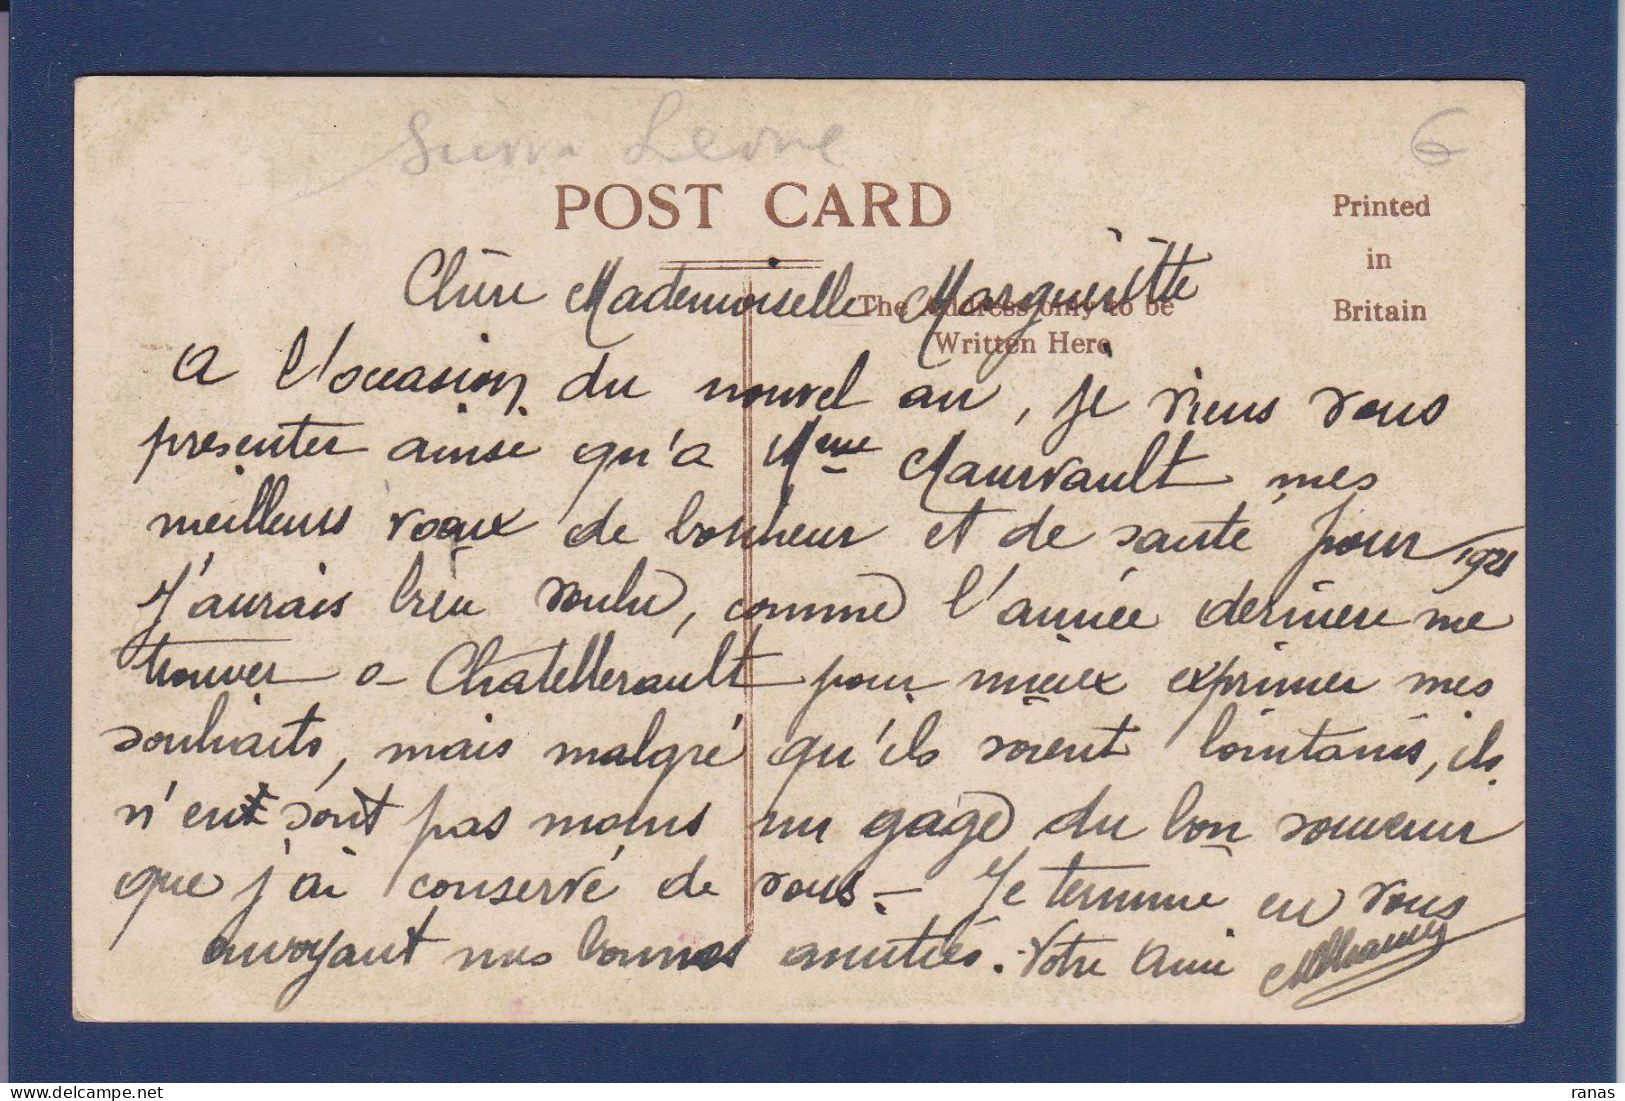 Sierra Leone
6
POST CARD
Printed
in
Britain
The Address only to be
Written Here
Chère Mademoiselle Margueritte
A l'occasion du nouvel an, je viens vous
présenter ainsi qu'à Mme Maurvault mes
meilleurs voeux de bonheur et de santé pour 1921
J'aurais bien voulu, comme l'année dernière me
trouver a Chatellerault pour mieux exprimer mes
souhaits, mais malgré qu'ils soient lointains, ils
n'en sont pas moins un gage du bon souvenir
que j'ai conservé de vous. – Je termine en vous
envoyant mes bonnes amitiés. Votre Ami
ranas